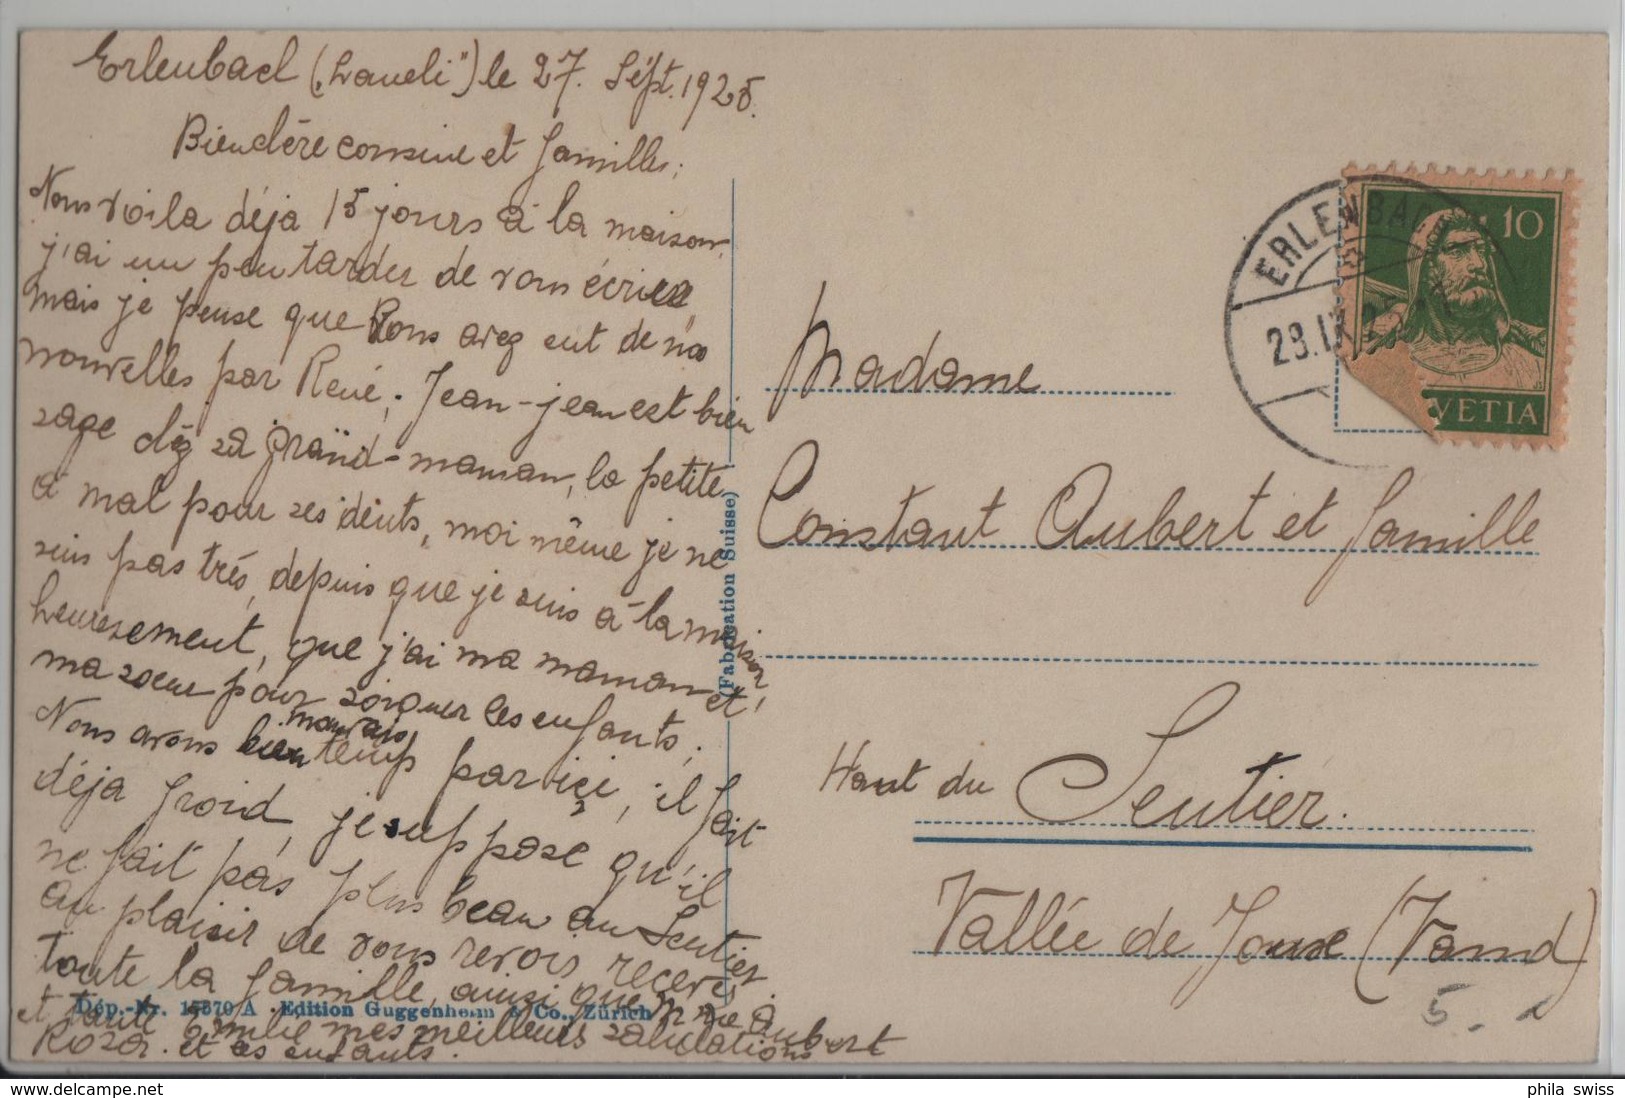 Erlenbach („Laueli") le 27. Sépt. 1925.
Bien chère cousine et familles;
Nous voila déja 15 jours à la maison,
j'ai un peu tarder de vous écrire
mais je pense que vous avez eut de nos
nouvelles par René; Jean-jean est bien
sage chéz sa graïnd-maman, la petite
a mal pour ses dents, moi même je ne
suis pas très, depuis que je suis à la maison,
heuresement, que j'ai ma maman et
ma soeur pour soigner les enfants;
Nous avons bien mauvais temps par içi, il fait
déja froid, je suppose qu'il
ne fait pas plus beau au Sentier
au plaisir de vous revois, recevez
toute la famille, ainsi que Mme Aubert
et tante Emilie mes meilleurs salutations
Rosa. et les enfants.
Dép.-Nr. 15570 A. Edition Guggenheim & Co., Zürich
(Fabrication Suisse)
ERLENBACH
28.IX.25
10
VETIA
Madame
Constant Aubert et famille
Haut du Sentier.
Vallée de Joux (Vaud)
5.-
phila swiss